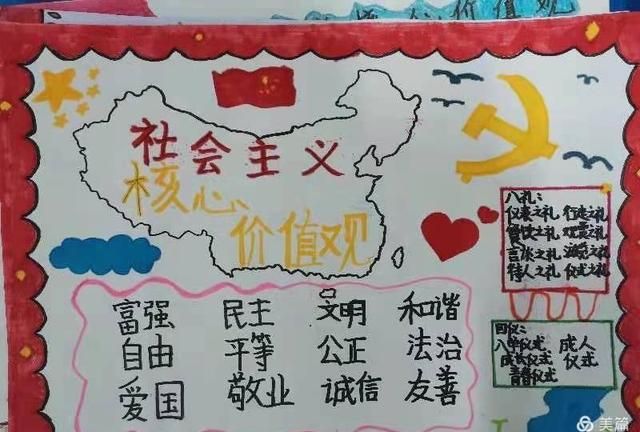 核心价值观
社会主义
核心
价值观
富强 民主 文明 和谐
自由 平等 公正 法治
爱国 敬业 诚信 友善
八礼:
仪表之礼 行走之礼
餐饮之礼 观赏之礼
言谈之礼 游览之礼
待人之礼 仪式之礼
四仪:
入学仪式 成人
成长仪式 仪式
青春仪式
美篇